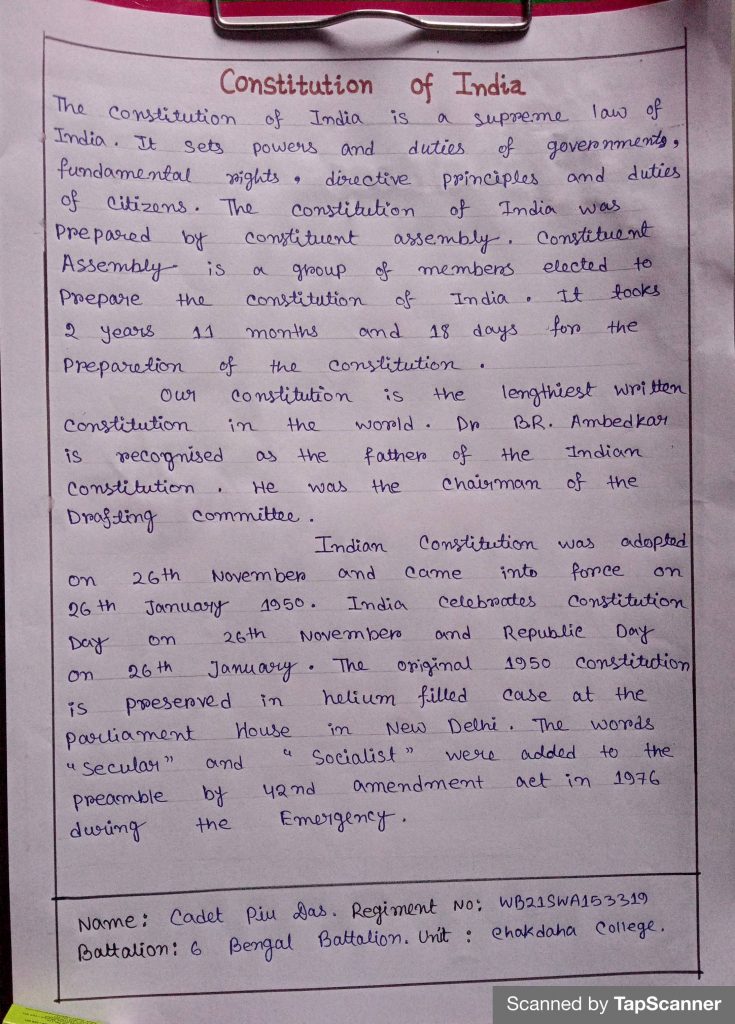 Constitution of India
The constitution of India is a supreme law of
India. It sets powers and duties of governments,
fundamental rights, directive principles and duties
of citizens. The constitution of India was
Prepared by constituent assembly. Constituent
Assembly is a group of members elected to
Prepare the constitution of India. It tooks
2 years 11 months and 18 days for the
Preparetion of the constitution.
Our constitution is the lengthiest written
constitution in the world. Dr BR. Ambedkar
is recognised as the father of the Indian
constitution. He was the chairman of the
Drafting committee.
Indian Constitution was adopted
on 26th November and came into force on
26th January 1950. India celebrates constitution
Day on 26th November and Republic Day
on 26th January. The original 1950 constitution
is preserved in helium filled case at the
parliament House in New Delhi. The words
"Secular" and "Socialist" were added to the
preamble by 42nd amendment act in 1976
during the Emergency.
Name: Cadet Piu Das. Regiment No: WB21SWA153319
Battalion: 6 Bengal Battalion. Unit: Chakdaha College.
Scanned by TapScanner